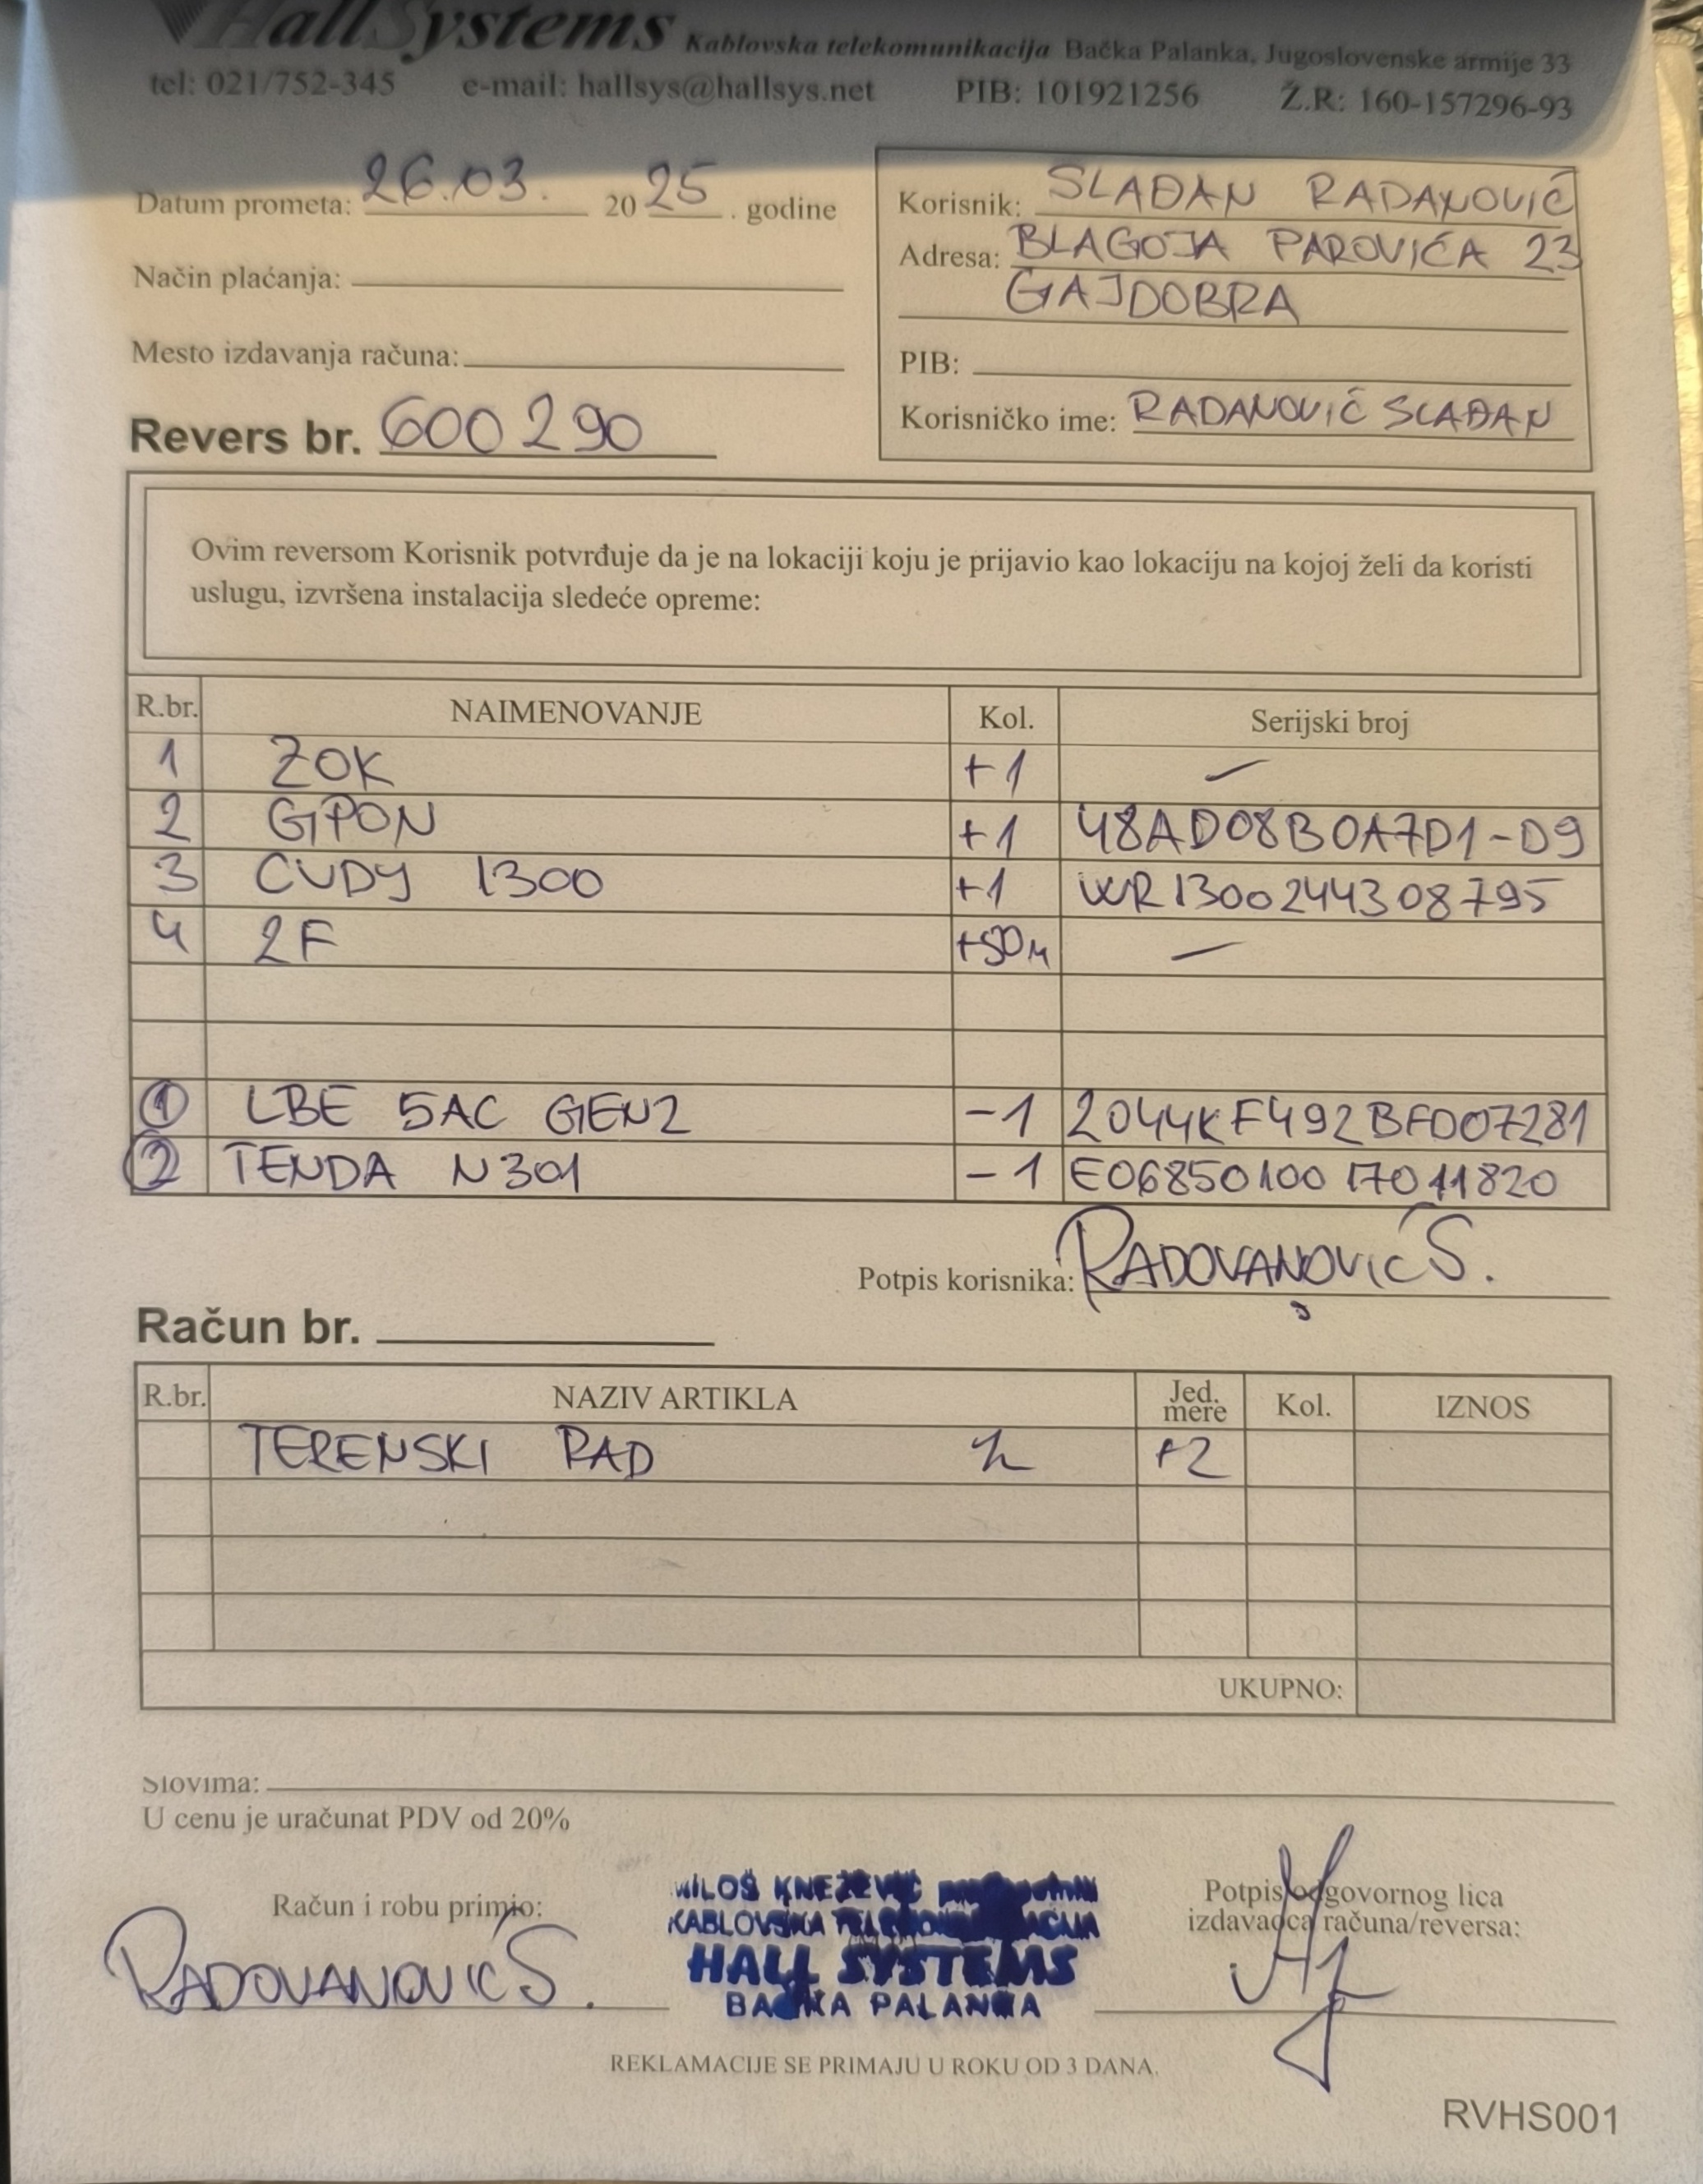 HallSystems Kablovska telekomunikacija Bačka Palanka, Jugoslovenske armije 33
tel: 021/752-345 e-mail: hallsys@hallsys.net PIB: 101921256 Ž.R: 160-157296-93
Datum prometa: 26.03. 2025. godine
Način plaćanja:
Mesto izdavanja računa:
Revers br. 600290
Korisnik: SLAĐAN RADANOVIĆ
Adresa: BLAGOJA PAROVIĆA 23
GAJDOBRA
PIB:
Korisničko ime: RADANOVIĆ SLAĐAN
Ovim reversom Korisnik potvrđuje da je na lokaciji koju je prijavio kao lokaciju na kojoj želi da koristi
uslugu, izvršena instalacija sledeće opreme:
R.br. NAIMENOVANJE Kol. Serijski broj
1 ZOK +1 –
2 GPON +1 48AD08B0A7D1-D9
3 CUDY 1300 +1 WR1300244308795
4 2F +50m –
1 LBE 5AC GEN2 -1 2044KF492BFD07281
2 TENDA N301 -1 E0685010017011820
Potpis korisnika: RADOVANOVIĆ S.
Račun br.
R.br. NAZIV ARTIKLA Jed. mere Kol. IZNOS
TERENSKI RAD h +2
UKUPNO:
Slovima:
U cenu je uračunat PDV od 20%
Račun i robu primio:
RADOVANOVIĆ S.
MILOŠ KNEŽEVIĆ
KABLOVSKA
HALL SYSTEMS
BAČKA PALANKA
Potpis odgovornog lica
izdavaoca računa/reversa:
REKLAMACIJE SE PRIMAJU U ROKU OD 3 DANA.
RVHS001